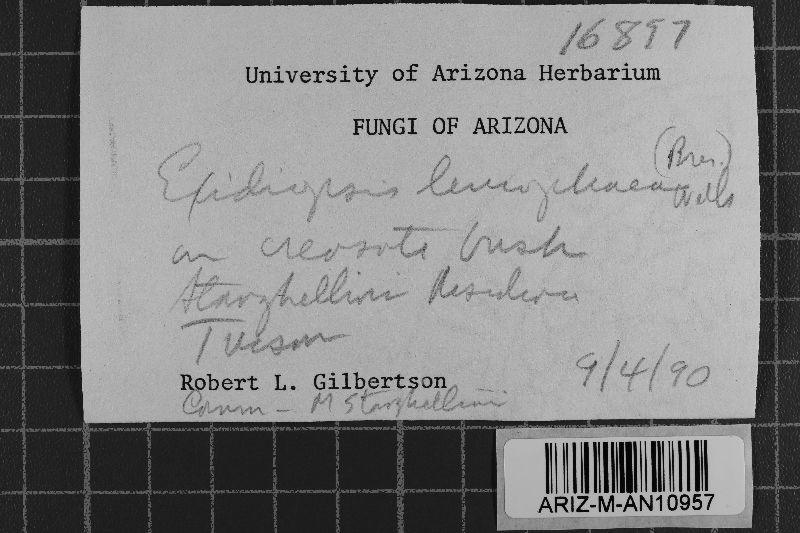 16897
University of Arizona Herbarium
FUNGI OF ARIZONA
Exidiopsis leucophaea (Bres.) Wells
on creosote bush
Stanghellini Residence
Tucson
Robert L. Gilbertson 9/4/90
Comm - M Stanghellini
ARIZ-M-AN10957